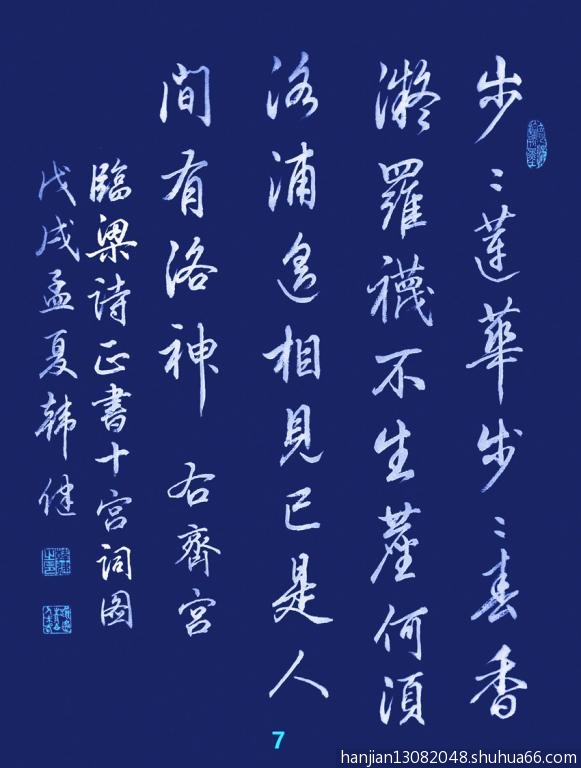 步〻蓮華步〻春香
凝羅襪不生塵何須
洛浦相見已是人
間有洛神 右齊宮
臨梁诗正書十宫词图
戊戌孟夏韩健
7
hanjian13082048.shuhua66.com